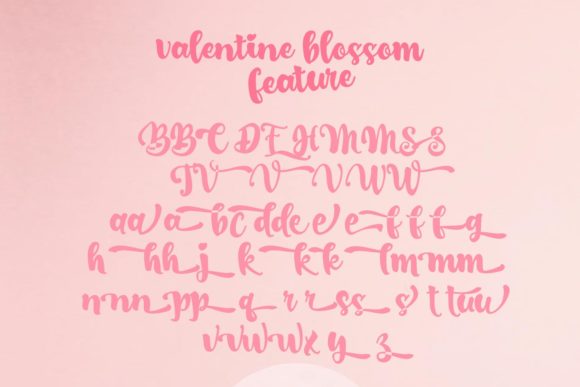 valentine blossom
feature
BBC DEHMMSS
TVVVWW
aaabcddeeefffg
hhhjkkklmmm
nnnppqrrsssttuu
vvwwxyz